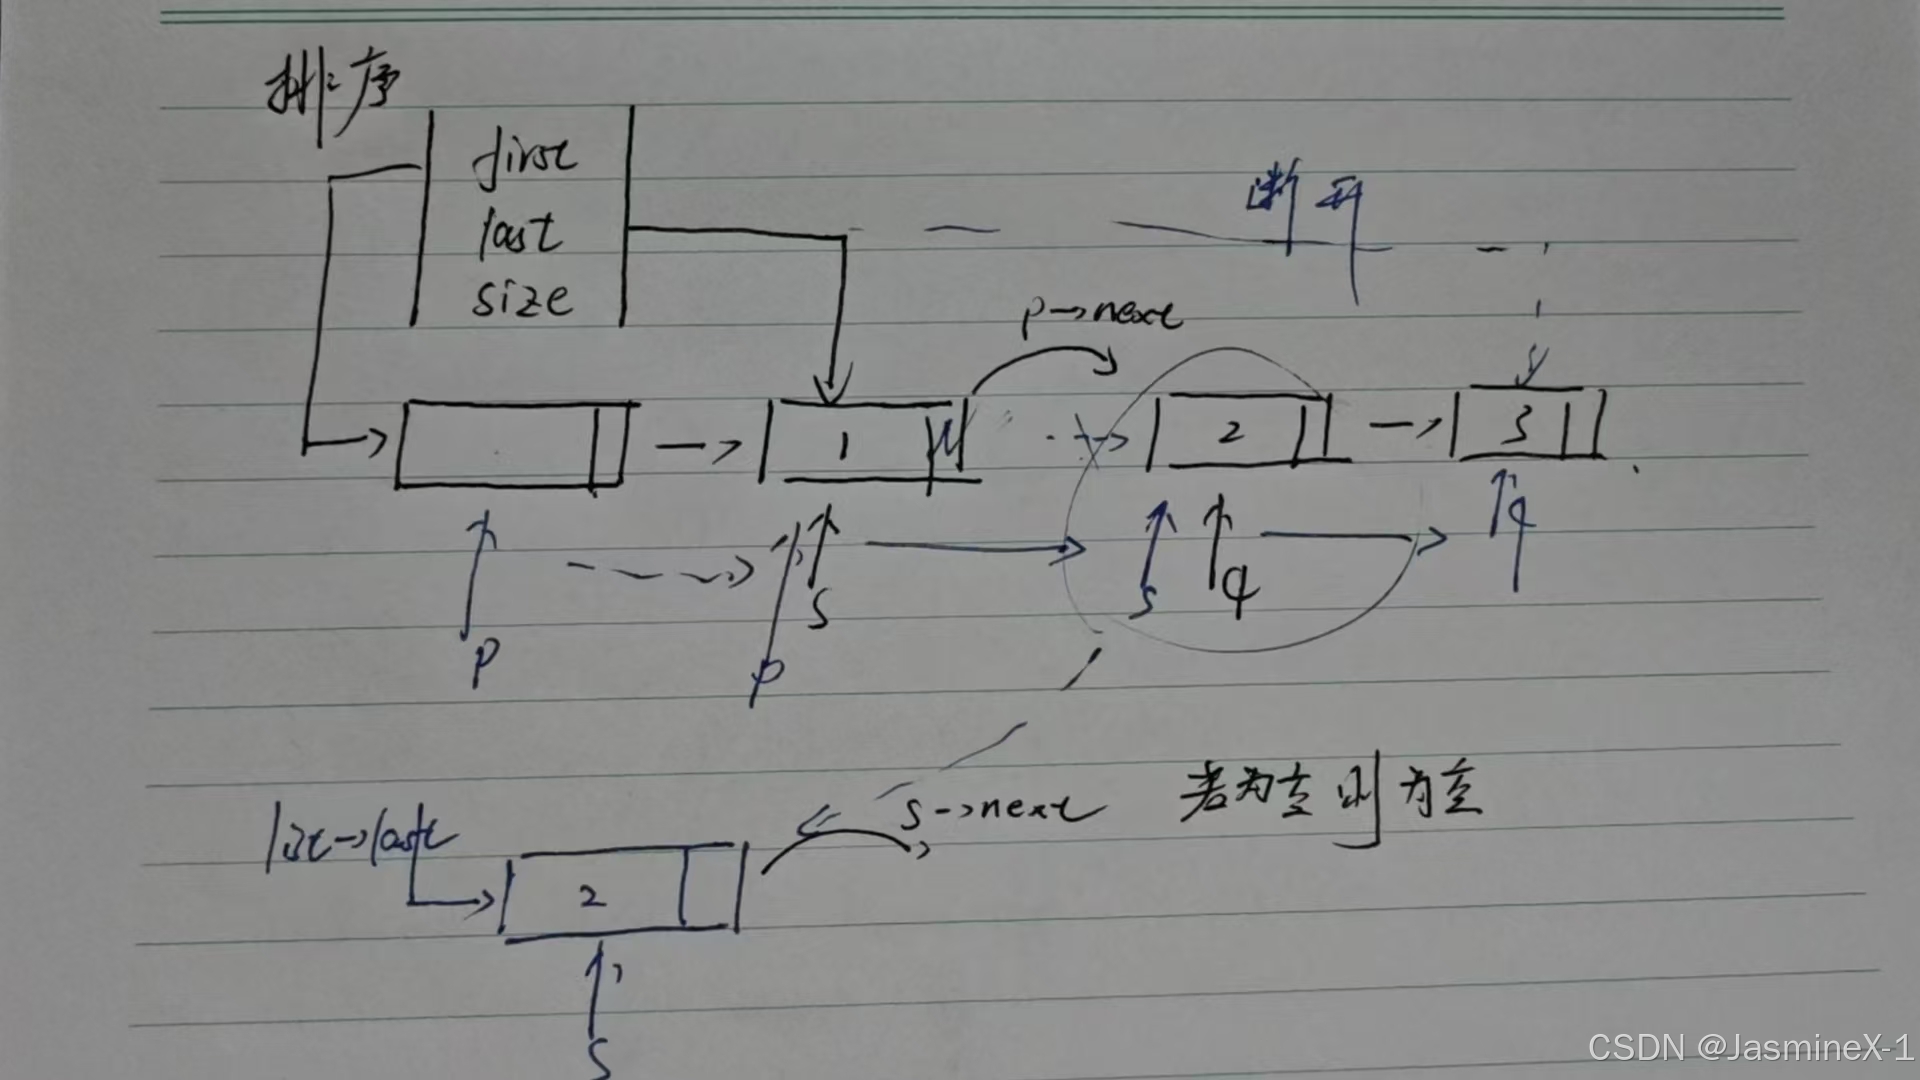 排序
first
last
size
断开
p→next
1
2
3
s
q
q
s
p
p
s→next 若为空则为空
list→last
2
s
CSDN @JasmineX-1